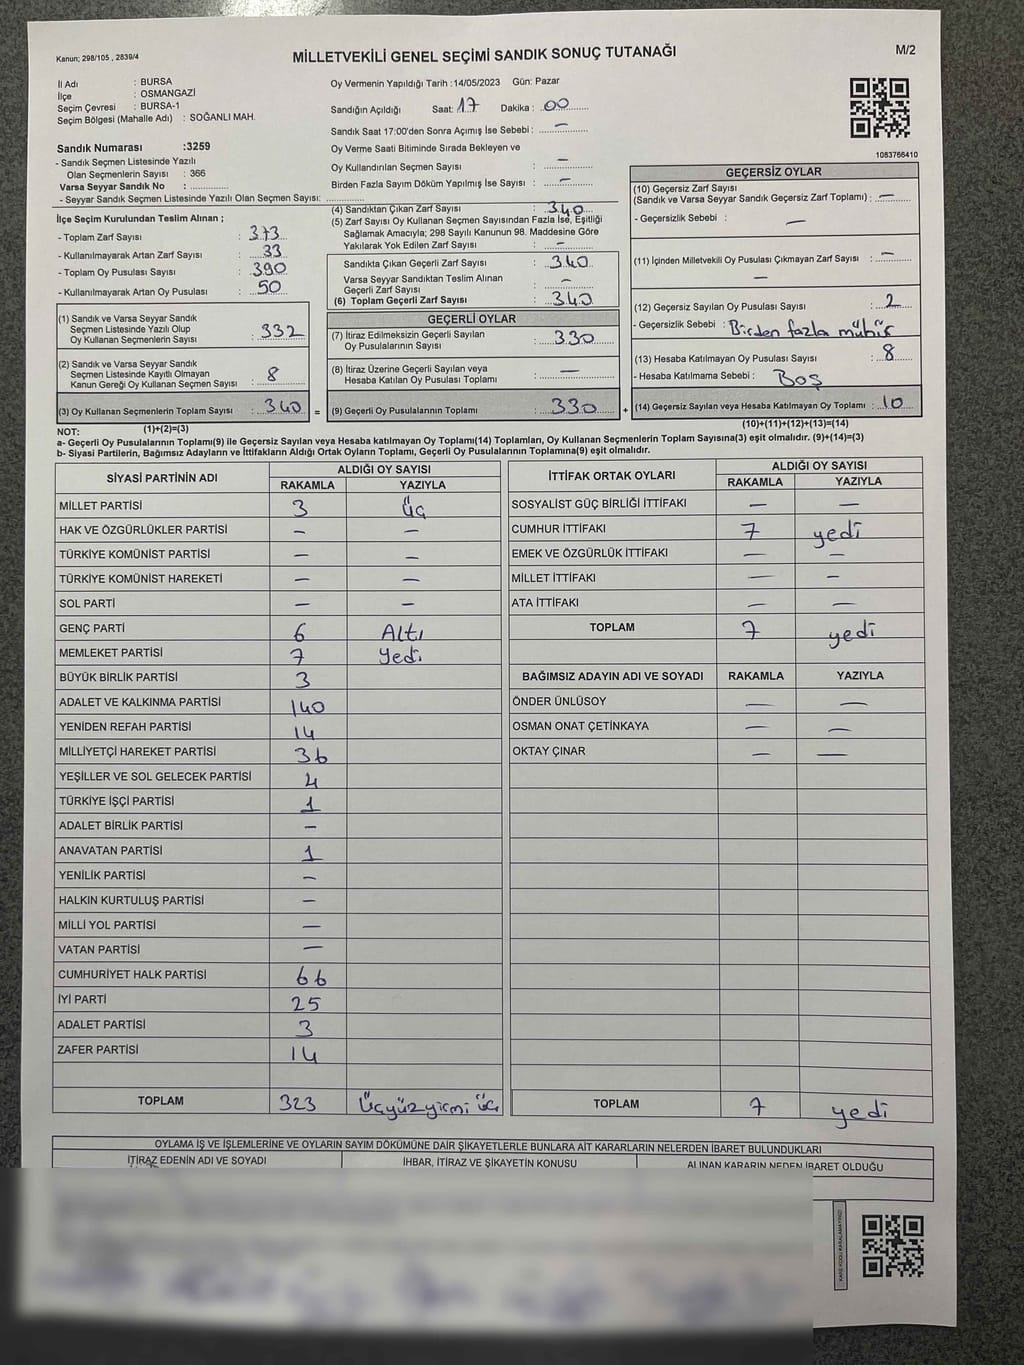 Kanun; 298/105 , 2839/4
MİLLETVEKİLİ GENEL SEÇİMİ SANDIK SONUÇ TUTANAĞI
M/2
İl Adı : BURSA
İlçe : OSMANGAZİ
Seçim Çevresi : BURSA-1
Seçim Bölgesi (Mahalle Adı) : SOĞANLI MAH.
Sandık Numarası :3259
- Sandık Seçmen Listesinde Yazılı
Olan Seçmenlerin Sayısı : 366
Varsa Seyyar Sandık No : ..............
- Seyyar Sandık Seçmen Listesinde Yazılı Olan Seçmen Sayısı: ..............
Oy Vermenin Yapıldığı Tarih :14/05/2023 Gün: Pazar
Sandığın Açıldığı Saat: 17 Dakika : 00
Sandık Saat 17:00'den Sonra Açımış İse Sebebi : —
Oy Verme Saati Bitiminde Sırada Bekleyen ve
Oy Kullandırılan Seçmen Sayısı : —
Birden Fazla Sayım Döküm Yapılmış İse Sayısı : —
1083766410
İlçe Seçim Kurulundan Teslim Alınan ;
- Toplam Zarf Sayısı : 373
- Kullanılmayarak Artan Zarf Sayısı : 33
- Toplam Oy Pusulası Sayısı : 390
- Kullanılmayarak Artan Oy Pusulası : 50
(1) Sandık ve Varsa Seyyar Sandık
Seçmen Listesinde Yazılı Olup
Oy Kullanan Seçmenlerin Sayısı : 332
(2) Sandık ve Varsa Seyyar Sandık
Seçmen Listesinde Kayıtlı Olmayan
Kanun Gereği Oy Kullanan Seçmen Sayısı : 8
(3) Oy Kullanan Seçmenlerin Toplam Sayısı : 340 =
(1)+(2)=(3)
(4) Sandıktan Çıkan Zarf Sayısı : 340
(5) Zarf Sayısı Oy Kullanan Seçmen Sayısından Fazla İse, Eşitliği
Sağlamak Amacıyla; 298 Sayılı Kanunun 98. Maddesine Göre
Yakılarak Yok Edilen Zarf Sayısı : —
Sandıkta Çıkan Geçerli Zarf Sayısı : 340
Varsa Seyyar Sandıktan Teslim Alınan
Geçerli Zarf Sayısı : —
(6) Toplam Geçerli Zarf Sayısı : 340
GEÇERLİ OYLAR
(7) İtiraz Edilmeksizin Geçerli Sayılan
Oy Pusulalarının Sayısı : 330
(8) İtiraz Üzerine Geçerli Sayılan veya
Hesaba Katılan Oy Pusulası Toplamı : —
(9) Geçerli Oy Pusulalarının Toplamı : 330 +
GEÇERSİZ OYLAR
(10) Geçersiz Zarf Sayısı
(Sandık ve Varsa Seyyar Sandık Geçersiz Zarf Toplamı) : —
- Geçersizlik Sebebi : —
(11) İçinden Milletvekili Oy Pusulası Çıkmayan Zarf Sayısı : —
—
(12) Geçersiz Sayılan Oy Pusulası Sayısı : 2
- Geçersizlik Sebebi : Birden fazla mühür
(13) Hesaba Katılmayan Oy Pusulası Sayısı : 8
- Hesaba Katılmama Sebebi : Boş
(14) Geçersiz Sayılan veya Hesaba Katılmayan Oy Toplamı : 10
(10)+(11)+(12)+(13)=(14)
NOT:
a- Geçerli Oy Pusulalarının Toplamı(9) ile Geçersiz Sayılan veya Hesaba katılmayan Oy Toplamı(14) Toplamları, Oy Kullanan Seçmenlerin Toplam Sayısına(3) eşit olmalıdır. (9)+(14)=(3)
b- Siyasi Partilerin, Bağımsız Adayların ve İttifakların Aldığı Ortak Oyların Toplamı, Geçerli Oy Pusulalarının Toplamına(9) eşit olmalıdır.
SİYASİ PARTİNİN ADI ALDIĞI OY SAYISI
RAKAMLA YAZIYLA
MİLLET PARTİSİ 3 Üç
HAK VE ÖZGÜRLÜKLER PARTİSİ — —
TÜRKİYE KOMÜNİST PARTİSİ — —
TÜRKİYE KOMÜNİST HAREKETİ — —
SOL PARTİ — —
GENÇ PARTİ 6 Altı
MEMLEKET PARTİSİ 7 Yedi
BÜYÜK BİRLİK PARTİSİ 3
ADALET VE KALKINMA PARTİSİ 140
YENİDEN REFAH PARTİSİ 14
MİLLİYETÇİ HAREKET PARTİSİ 36
YEŞİLLER VE SOL GELECEK PARTİSİ 4
TÜRKİYE İŞÇİ PARTİSİ 1
ADALET BİRLİK PARTİSİ —
ANAVATAN PARTİSİ 1
YENİLİK PARTİSİ —
HALKIN KURTULUŞ PARTİSİ —
MİLLİ YOL PARTİSİ —
VATAN PARTİSİ —
CUMHURİYET HALK PARTİSİ 66
İYİ PARTİ 25
ADALET PARTİSİ 3
ZAFER PARTİSİ 14
TOPLAM 323 Üçyüzyirmi üç
İTTİFAK ORTAK OYLARI ALDIĞI OY SAYISI
RAKAMLA YAZIYLA
SOSYALİST GÜÇ BİRLİĞİ İTTİFAKI — —
CUMHUR İTTİFAKI 7 yedi
EMEK VE ÖZGÜRLÜK İTTİFAKI — —
MİLLET İTTİFAKI — —
ATA İTTİFAKI — —
TOPLAM 7 yedi
BAĞIMSIZ ADAYIN ADI VE SOYADI RAKAMLA YAZIYLA
ÖNDER ÜNLÜSOY — —
OSMAN ONAT ÇETİNKAYA — —
OKTAY ÇINAR — —
TOPLAM 7 yedi
OYLAMA İŞ VE İŞLEMLERİNE VE OYLARIN SAYIM DÖKÜMÜNE DAİR ŞİKAYETLERLE BUNLARA AİT KARARLARIN NELERDEN İBARET BULUNDUKLARI
İTİRAZ EDENİN ADI VE SOYADI İHBAR, İTİRAZ VE ŞİKAYETİN KONUSU ALINAN KARARIN NEDEN İBARET OLDUĞU
KARE KODU KARALAMAYINIZ!